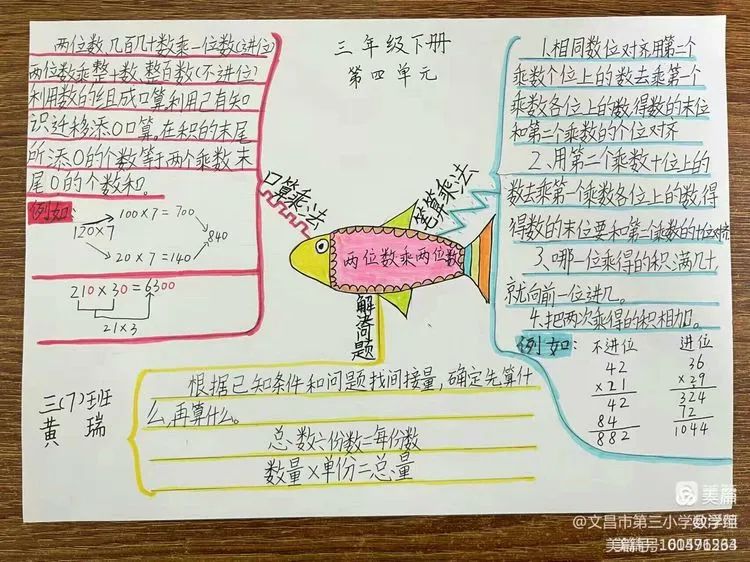 三年级下册
第四单元
两位数、几百几十数乘一位数(进位)
两位数乘整十数、整百数(不进位)
利用数的组成口算,利用已有知
识迁移添0口算。在积的末尾
所添0的个数等于两个乘数末
尾0的个数和。
例如:
100×7=700
120×7
840
20×7=140
210×30=6300
21×3
口算乘法
笔算乘法
两位数乘两位数
解决问题
1.相同数位对齐用第二个
乘数个位上的数去乘第一个
乘数各位上的数,得数的末位
和第二个乘数的个位对齐
2、用第二个乘数十位上的
数去乘第一个乘数各位上的数,得
得数的末位要和第一个乘数的十位对齐
3、哪一位乘得的积满几十,
就向前一位进几。
4.把两次乘得的积相加。
例如:
不进位
42
×21
42
84
882
进位
36
×29
324
72
1044
根据已知条件和问题找间接量,确定先算什
么,再算什么。
总数÷份数=每份数
数量×单份=总量
三(7)班
黄 瑞
美篇
@文昌市第三小学